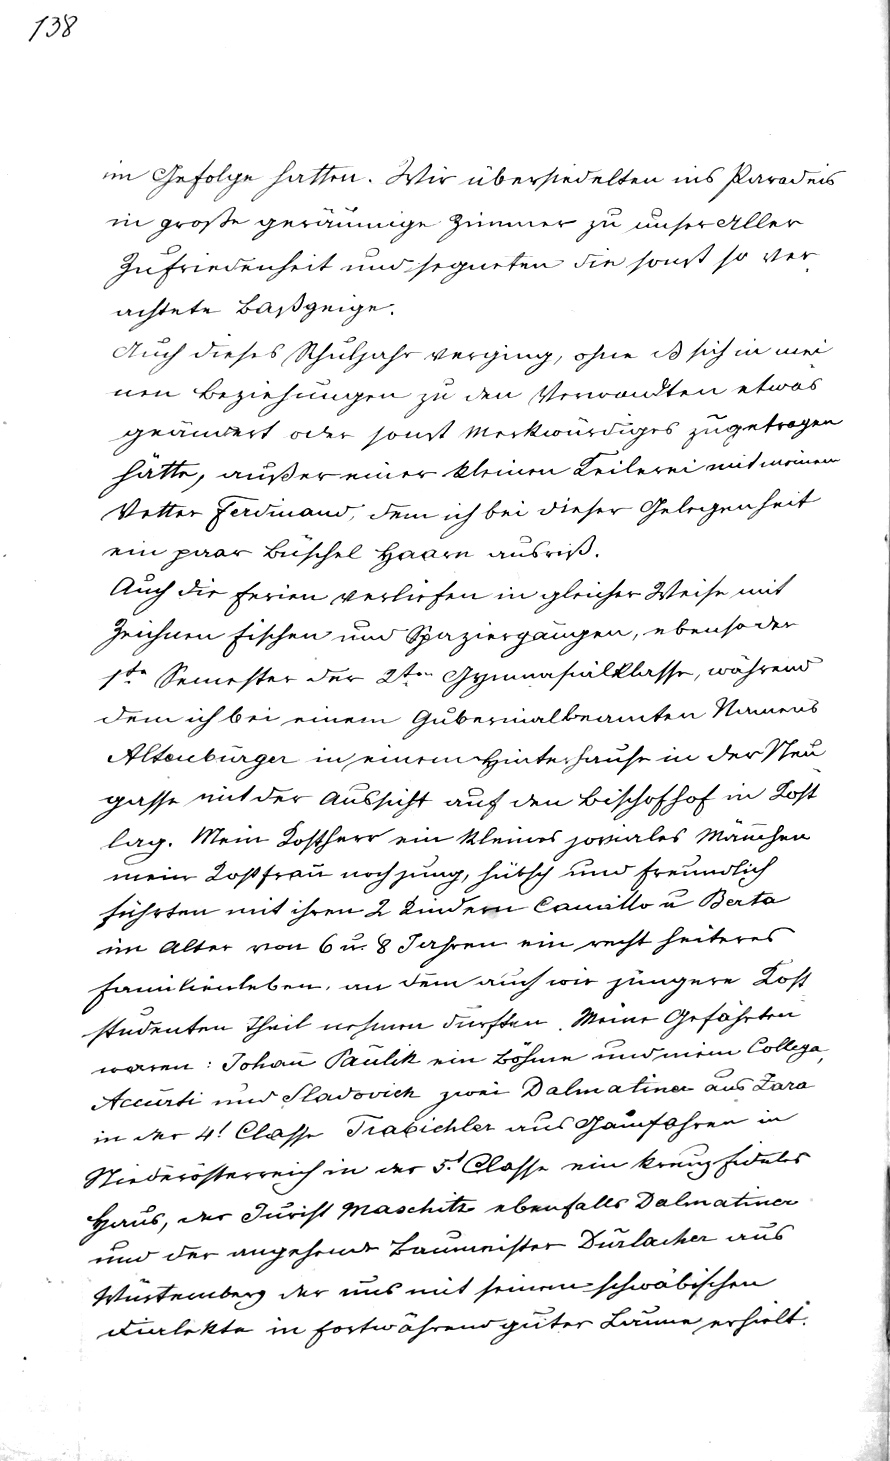 138
im Gefolge hatten. Wir übersiedelten ins Paradeis
in große geräumige Zimmer zu unser Aller
Zufriedenheit und segneten die sonst so ver
achtete Baßgeige.
Auch dieses Schuljahr verging, ohne dß sich in mei
nen Beziehungen zu den Verwandten etwas
geändert oder sonst Merkwürdiges zugetragen
hätte, außer einer kleinen Keilerei mit meinem
Vetter Ferdinand, dem ich bei dieser Gelegenheit
ein paar Büschel Haare ausriß.
Auch die Ferien verliefen in gleicher Weise mit
Zeichnen Fischen und Spaziergängen, ebenso der
1te Semester der 2ten Gymnasialklasse, während
dem ich bei einem Gubernialbeamten Namens
Altenburger in einem Hinterhause in der Neu
gasse mit der Aussicht auf den Bischofhof in Kost
lag. Mein Kostherr ein kleines joviales Männchen
meine Kostfrau noch jung, hübsch und freundlich
führten mit ihren 2 Kindern Camillo u Berta
im Alter von 6 u. 8 Jahren ein recht heiteres
Familienleben, an dem auch wir jüngere Kost
studenten Theil nehmen durften. Meine Gefährten
waren: Johan̄ Paulik ein Böhme und mein Collega,
Accurti und Sladovich zwei Dalmatiner aus Zara
in der 4t Classe Trabichler aus Gainfahren in
Niederösterreich in der 5t Classe ein kreuzfideles
Haus, der Jurist Maschitz ebenfalls Dalmatiner
und der angehende Baumeister Durlacher aus
Würtemberg der uns mit seinem schwäbischen
Dialekte in fortwährend guter Laune erhielt.